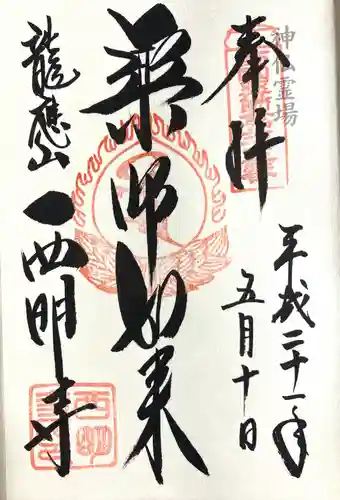 神仏霊場
奉拝
平成二十一年
五月十日
薬師如来
龍應山
西明寺
西明
寺印